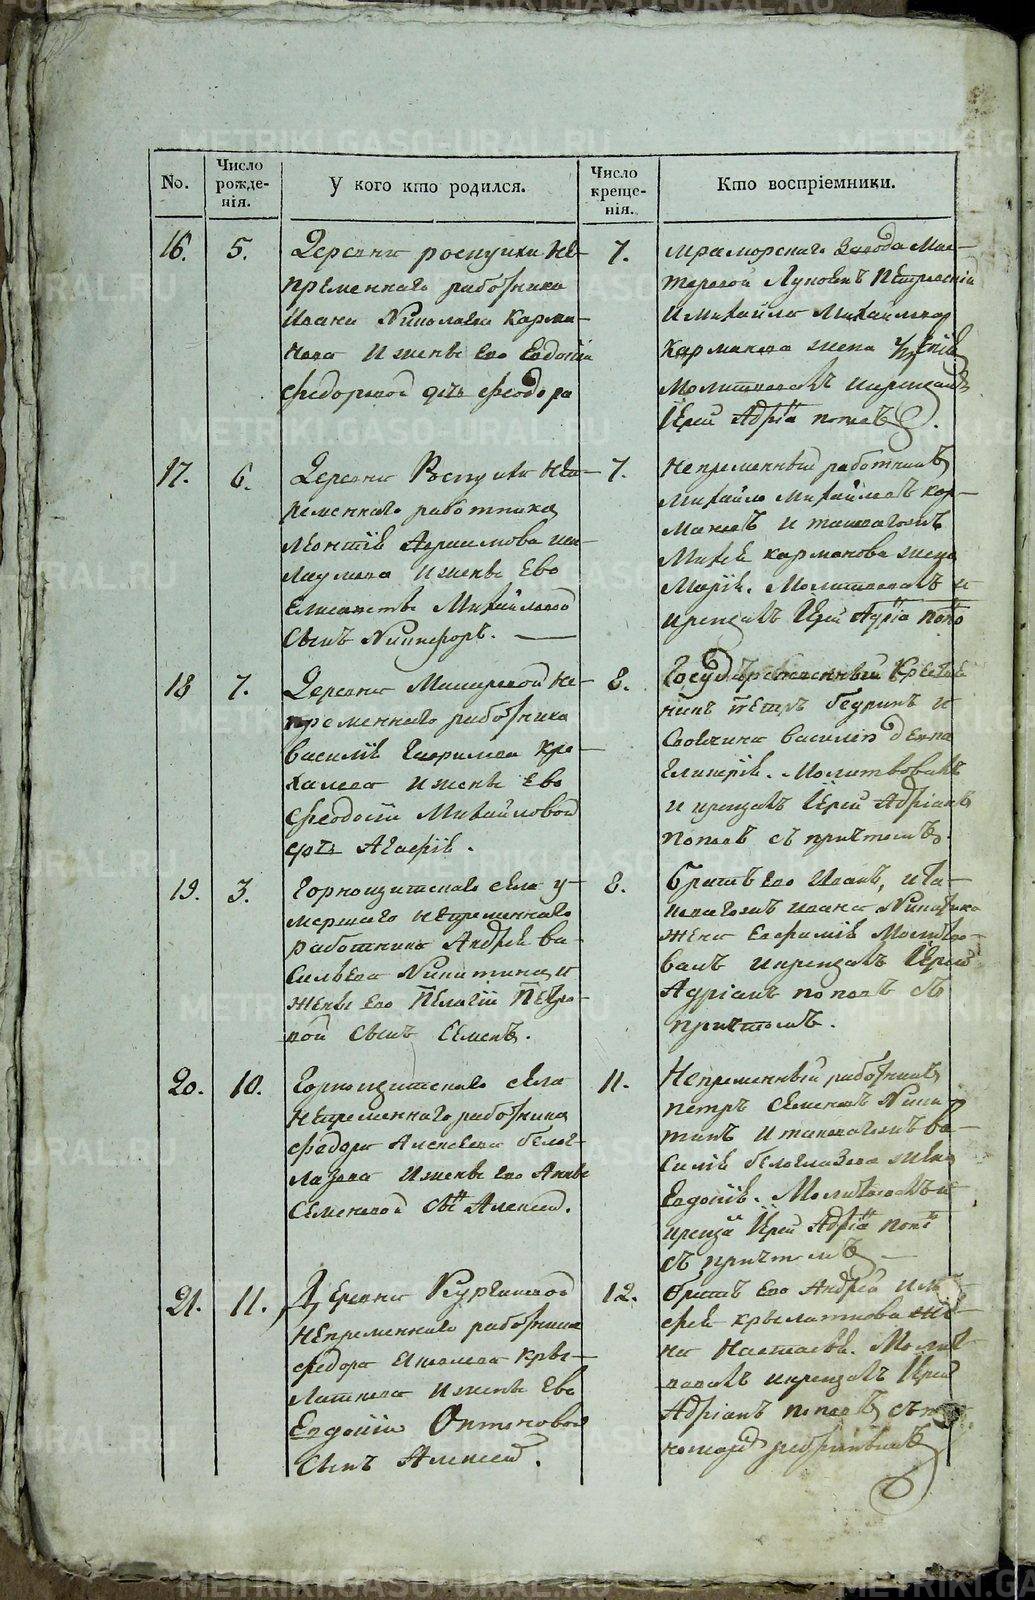 METRIKI.GASO-URAL.RU
No.
Число рожде-нія.
У кого кто родился.
Число креще-нія.
Кто воспріемники.
16.
5.
Деревни роспуики не-
пременнаго работника
Ивана Николаева Карма-
нова и жены Его Евдокіи
Федоровой дчь Феодора
7.
мраморскаго Завода Мас-
теровой
и Михайла Михайлова
Карманова жена
Молитвовалъ и крещалъ
Іерей Адріа поповъ.
17.
6.
Деревни непре-
меннаго работника
Леонтія
и жены Ево
Елисаветы Михайловой
Сынъ Никифоръ.
7.
Непременный работникъ
Михайло Михайловъ Кар-
мановъ и
карманова жена
Марія. Молитвовалъ и
крещалъ Іерей Адріа попо
18
7.
Деревни не-
пременнаго работника
Василія Гаврилова
и жены Ево
Феодосіи Михайловой
дочь Агафія.
8.
Государственный Кресть
нинъ Петръ и
девка
Гликерія. Молитвовалъ
и крещалъ Іерей Адріанъ
поповъ съ причтомъ.
19.
3.
Горнощитскаго села у-
мершаго непременнаго
работника Андрея Ва-
сильева Никитина и
жены Его Пелагіи Петро-
вой сынъ Семенъ.
8.
Братъ Его Иванъ, и та-
коваго жъ Ивана Никитина
жена Евфимія Молитво-
валъ и крещалъ Іерей
Адріанъ поповъ съ
причтомъ.
20.
10.
Горнощитскаго села
Непременнаго работника
Федора Алексеева Белог-
лазова и жены его Анны
Семеновой сы Алексей.
11.
Непременный работникъ
петръ Семеновъ Ники
тинъ и таковаго жъ Ва-
силія Белоглазова жена
Евдокія. Молитвовалъ и
креща Іерей Адріа попо
съ причтомъ
21.
11.
Деревни Кургановой
Непременнаго работника
Федора Яковлева Кры-
латкова и жены Ево
Евдокіи Антоновой
Сынъ Алексей.
12.
Братъ Его Андрей
Крылаткова же-
на Настасья.
и крещалъ Іерей
Адріанъ поповъ съ